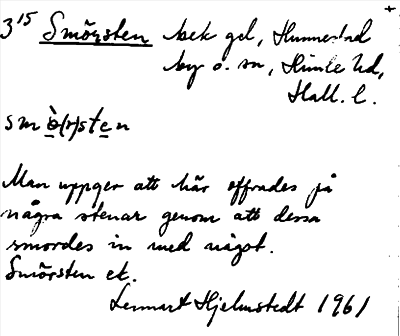 3¹⁵ Smörsten bek gd, Hunnestad
by o. sn, Himle hd,
Hall. l.
smò̱(r)ste̱n
Man uppger att här offrades på
några stenar genom att dessa
smordes in med något.
Smörsten et.
Lennart Hjelmstedt 1961